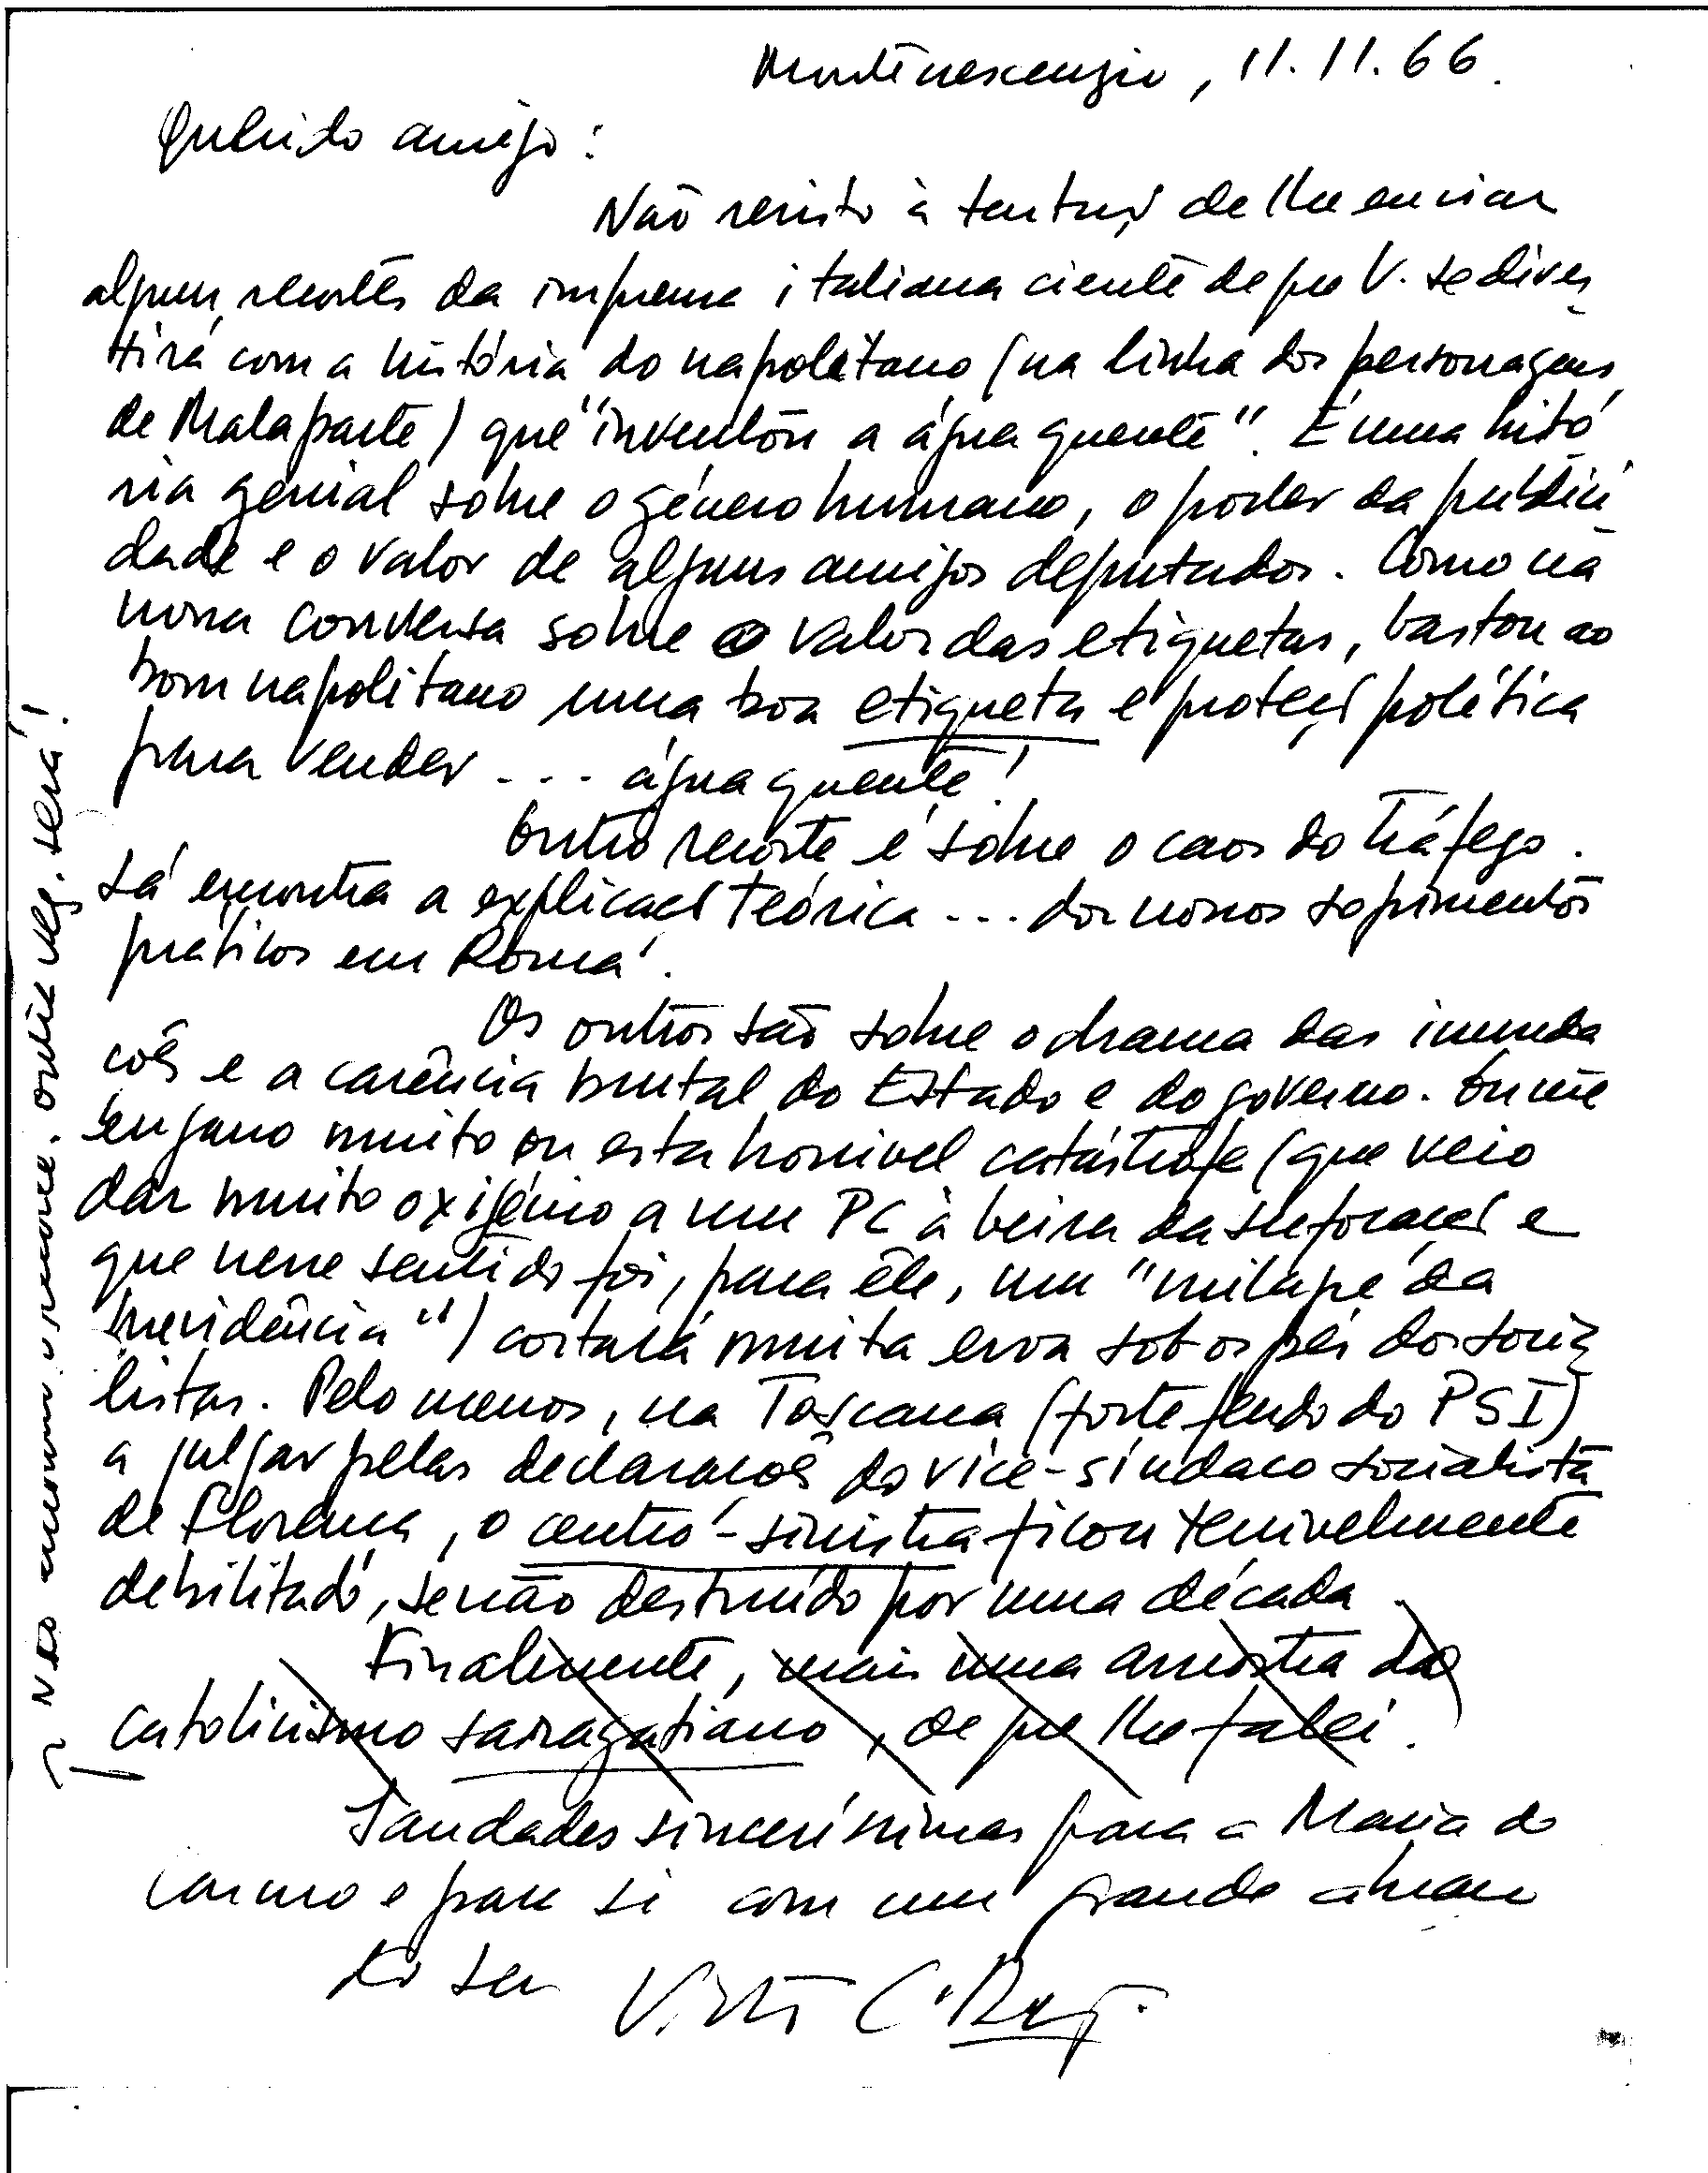 Montenescenzio, 11.11.66.
Querido amigo:
Não resisto à tentação de lhe enviar
alguns recortes da imprensa italiana ciente de que V. se diver
tirá com a história do napolitano (na linha dos personagens
de Malaparte) que "inventou a água quente". É uma histó
ria genial sobre o género humano, o poder da publici
dade e o valor de alguns amigos deputados. Como na
nossa conversa sobre o valor das etiquetas, bastou ao
bom napolitano uma boa etiqueta e proteção política
para vender... água quente!
Outro recorte é sobre o caos do tráfego.
Lá encontra a explicação teórica... dos nossos sofrimentos
práticos em Roma.
Os outros são sobre o drama das inunda
ções e a carência brutal do Estado e do governo. Ou me
engano muito ou esta horrível catástrofe (que veio
dar muito oxigénio a um PC à beira da sufocação e
que nesse sentido foi, para êle, um "milagre da
Providência") cortará muita erva sob os pés dos socia
listas. Pelo menos, na Toscana (forte feudo do PSI)
a julgar pelas declarações do vice-síndaco socialista
de Florença, o centro-sinistra ficou terrivelmente
debilitado, senão destruído por uma década.
Finalmente, mais uma amostra do
catolicismo saragatiano, de que lhe falei.
Saudades sinceríssimas para a Maria do
Carmo e para si com um grande abraço
do seu
Não encontrei o recorte. Outra vez será!